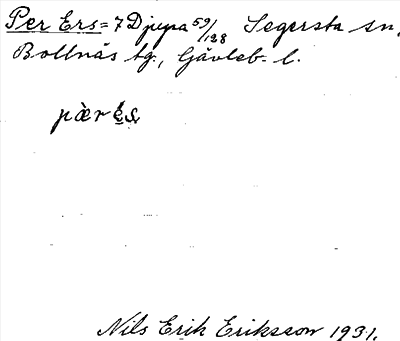 Per Ers = 7 Djupa 59/128 Segersta sn,
Bollnäs tg, Gävleb. l.
pær
Nils Erik Eriksson 1931.